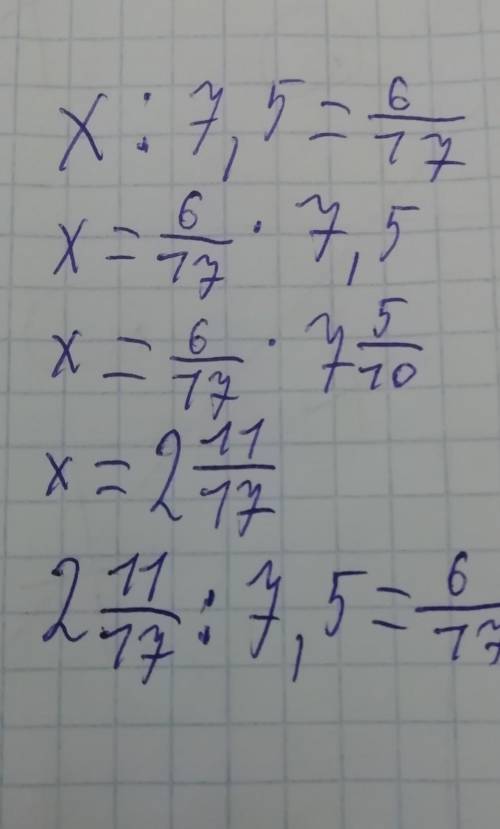 x : 7,5 = 6/17
x = 6/17 · 7,5
x = 6/17 · 7 5/10
x = 2 11/17
2 11/17 : 7,5 = 6/17